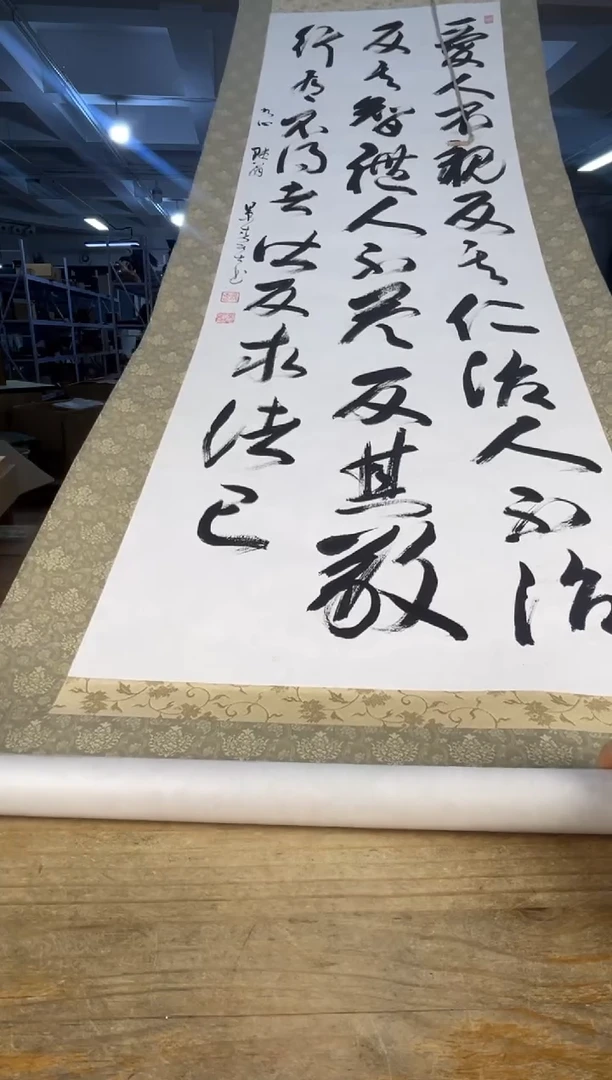 愛人不親反其仁治人不治
反其智禮人不答反其敬
行有不得者皆反求諸己